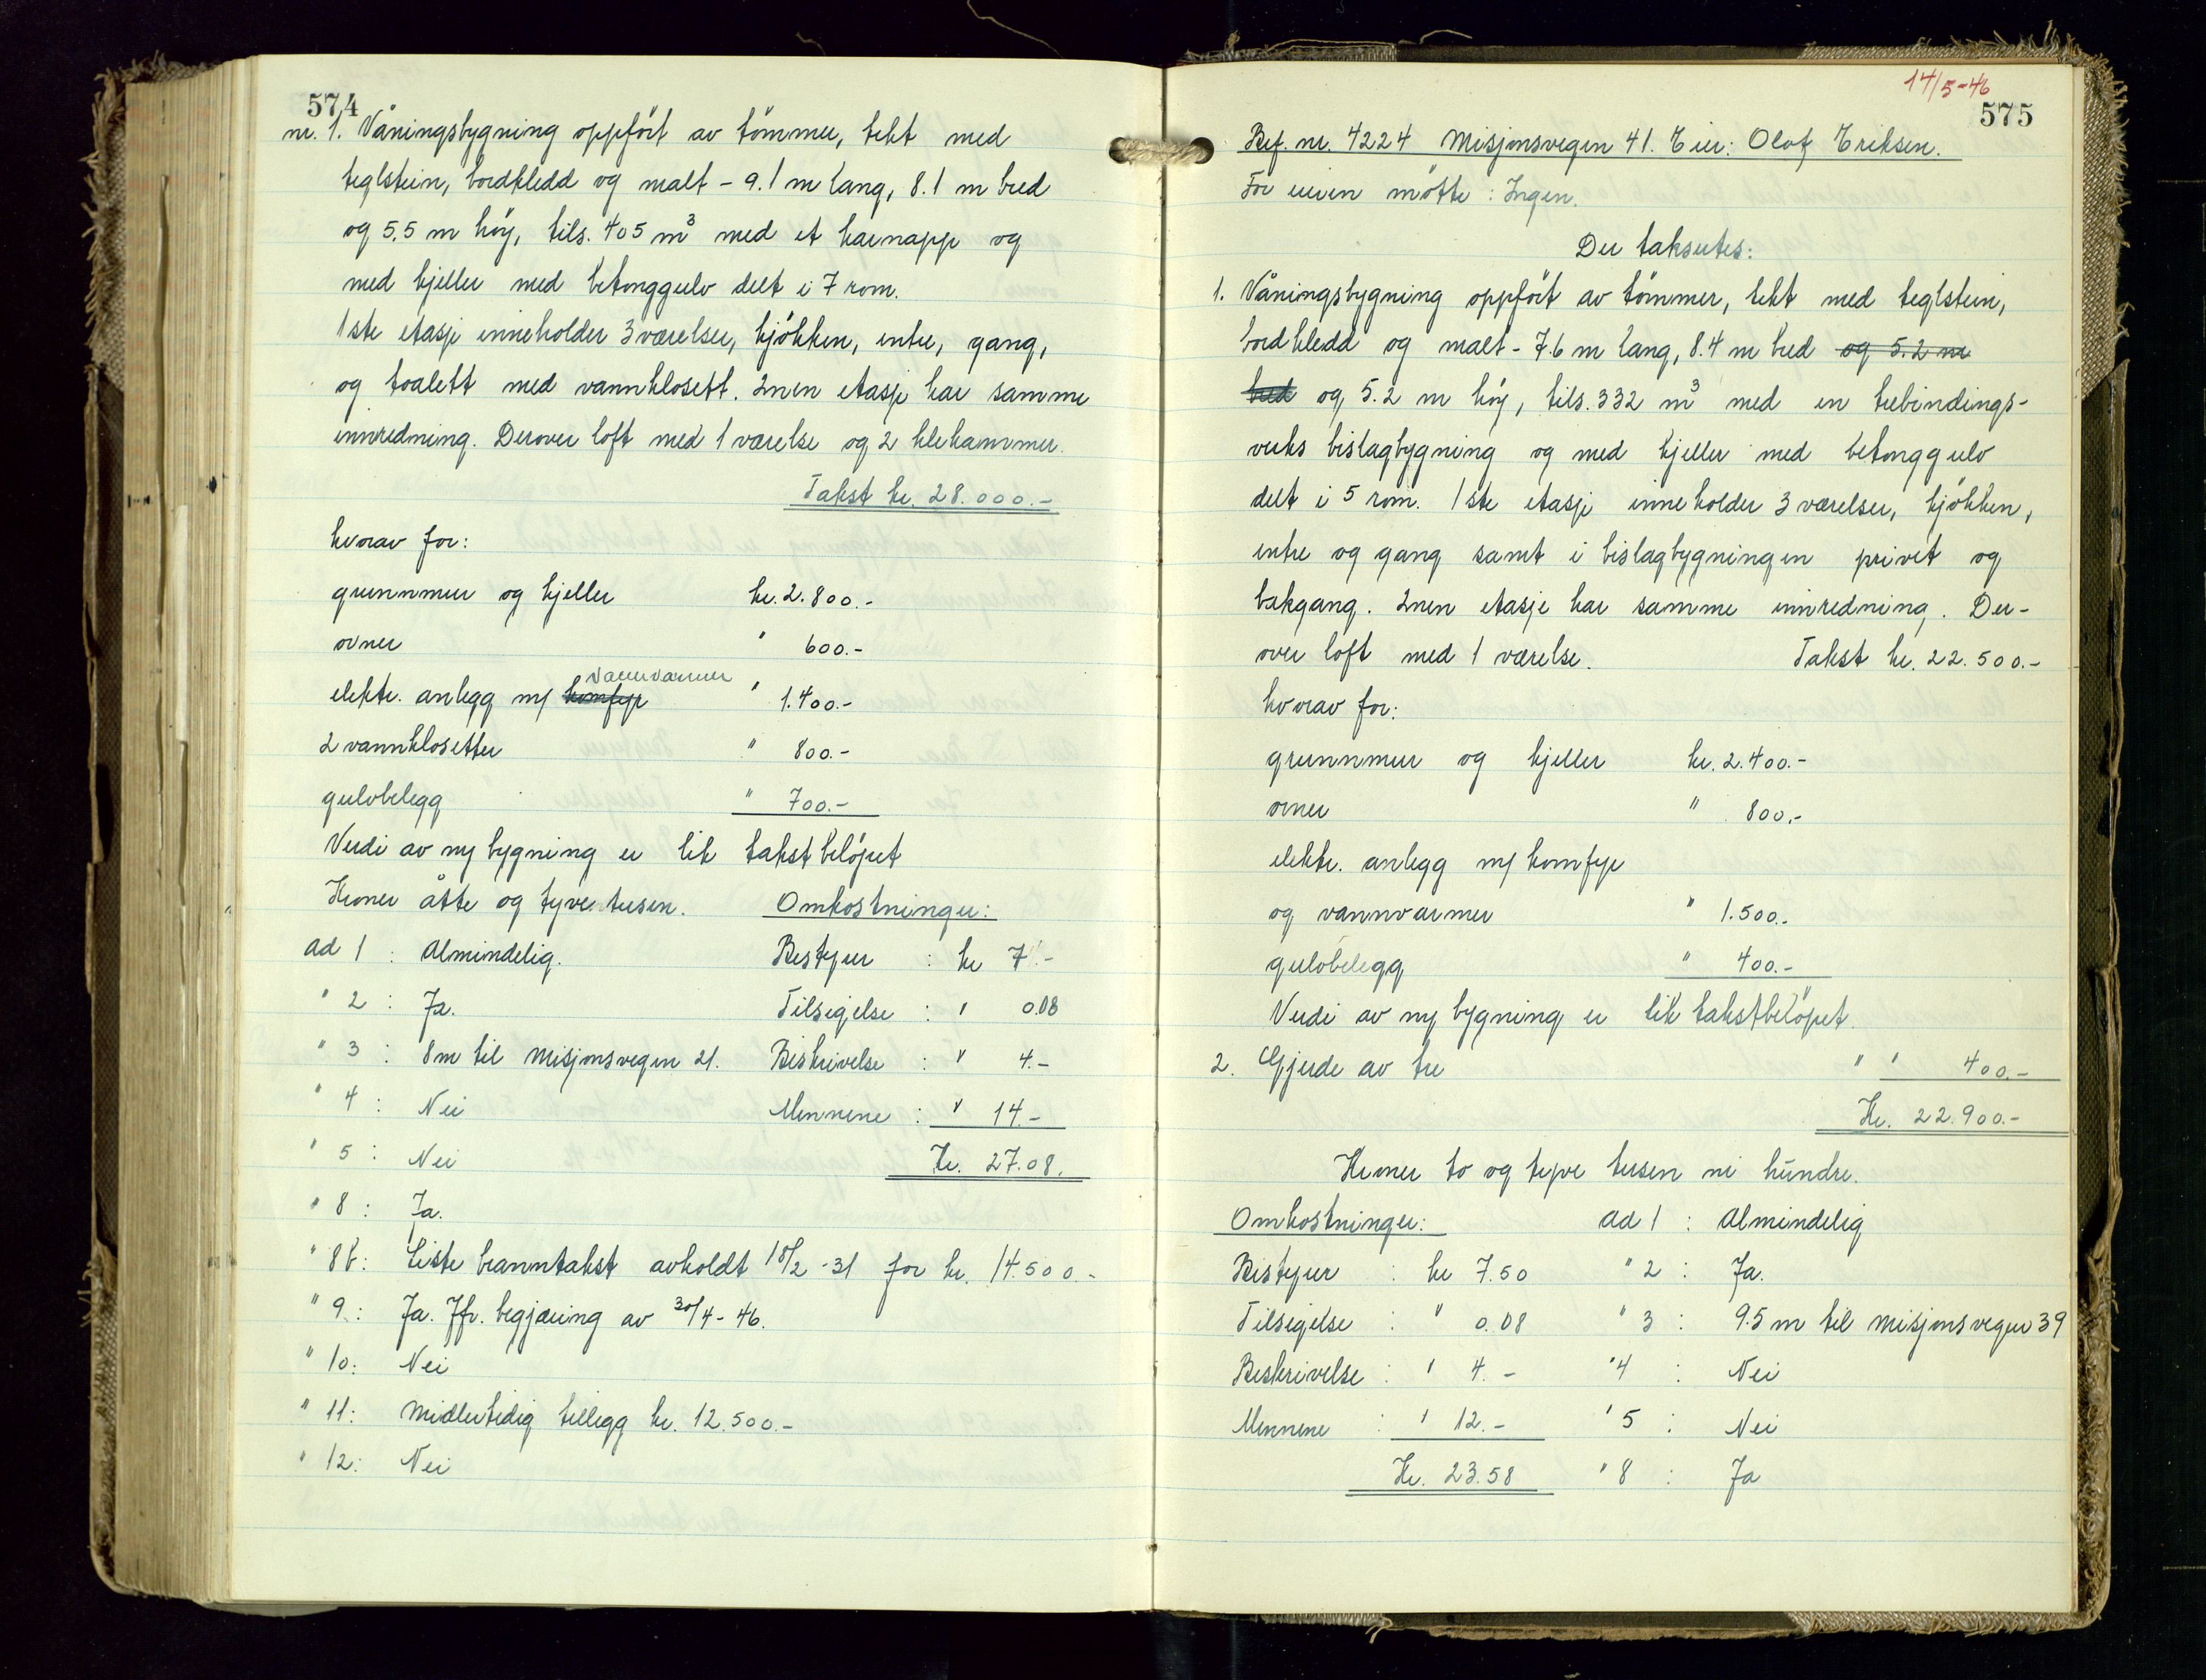 574
nr. 1. Våningsbygning oppfört av tömmer, tekt med
teglstein, bordkledd og malt - 9.1 m lang, 8.1 m bred
og 5.5 m höy, tils. 405 m³ med et karnapp og
med kjeller med betonggulv delt i 7 rom.
1ste etasje inneholder 3 værelser, kjökken, entre, gang,
og toalett med vannklosett. 2nen etasje har samme
innredning. Derover loft med 1 værelse og 2 klekammer.
Takst kr. 28.000.-
hvorav for:
grunnmur og kjeller kr. 2.800.-
ovner " 600.-
vannvarmer
elektr. anlegg m/ komfyr " 1.400.-
2 vannklosetter " 800.-
gulvbelegg " 700.-
Verdi av ny bygning er lik takstbelöpet
Kroner åtte og tyve tusen. Omkostninger:
ad 1 : Almindelig. Bestyrer : kr 7.-
" 2 : Ja. Tilsigelse : " 0.08
" 3 : 8m til Misjonsvegen 21. Beskrivelse : " 4.-
" 4 : Nei Mennene : " 14.-
" 5 : Nei Kr. 27.08.
" 8 : Ja.
" 8b: Siste branntakst avholdt 18/2 -31 for kr. 14.500.-
" 9.: Ja. Jfr. begjæring av 30/4 - 46.
" 10: Nei
" 11: Midlertidig tillegg kr. 12.500.-
" 12: Nei
14/5-46
575
Bef. nr. 4224 Misjonsvegen 41. Eier: Olaf Eriksen.
For eieren mötte : Ingen.
Der takseres:
1. Våningsbygning oppfört av tömmer, tekt med teglstein,
bordkledd og malt - 7.6 m lang, 8.4 m bred og 5.2 m
bred og 5.2 m höy, tils. 332 m³ med en trebindings-
verks bislagbygning og med kjeller med betonggulv
delt i 5 rom. 1ste etasje inneholder 3 værelser, kjökken,
entre og gang samt i bislagbygningen privet og
bakgang. 2nen etasje har samme innredning. Der-
over loft med 1 værelse. Takst kr. 22.500.-
hvorav for:
grunnmur og kjeller kr. 2.400.-
ovner " 800.-
elektr. anlegg m/ komfyr
og vannvarmer " 1.500.-
gulvbelegg " 400.-
Verdi av ny bygning er lik takstbelöpet.
2. Gjerde av tre " " 400.-
Kr. 22.900.-
Kroner to og tyve tusen ni hundre.
Omkostninger: ad 1 : Almindelig
Bestyrer : kr 7.50 " 2 : Ja.
Tilsigelse : " 0.08 " 3 : 9.5 m til Misjonsvegen 39
Beskrivelse : " 4.- " 4 : Nei
Mennene : " 12.- " 5 : Nei
Kr. 23.58 " 8 : Ja